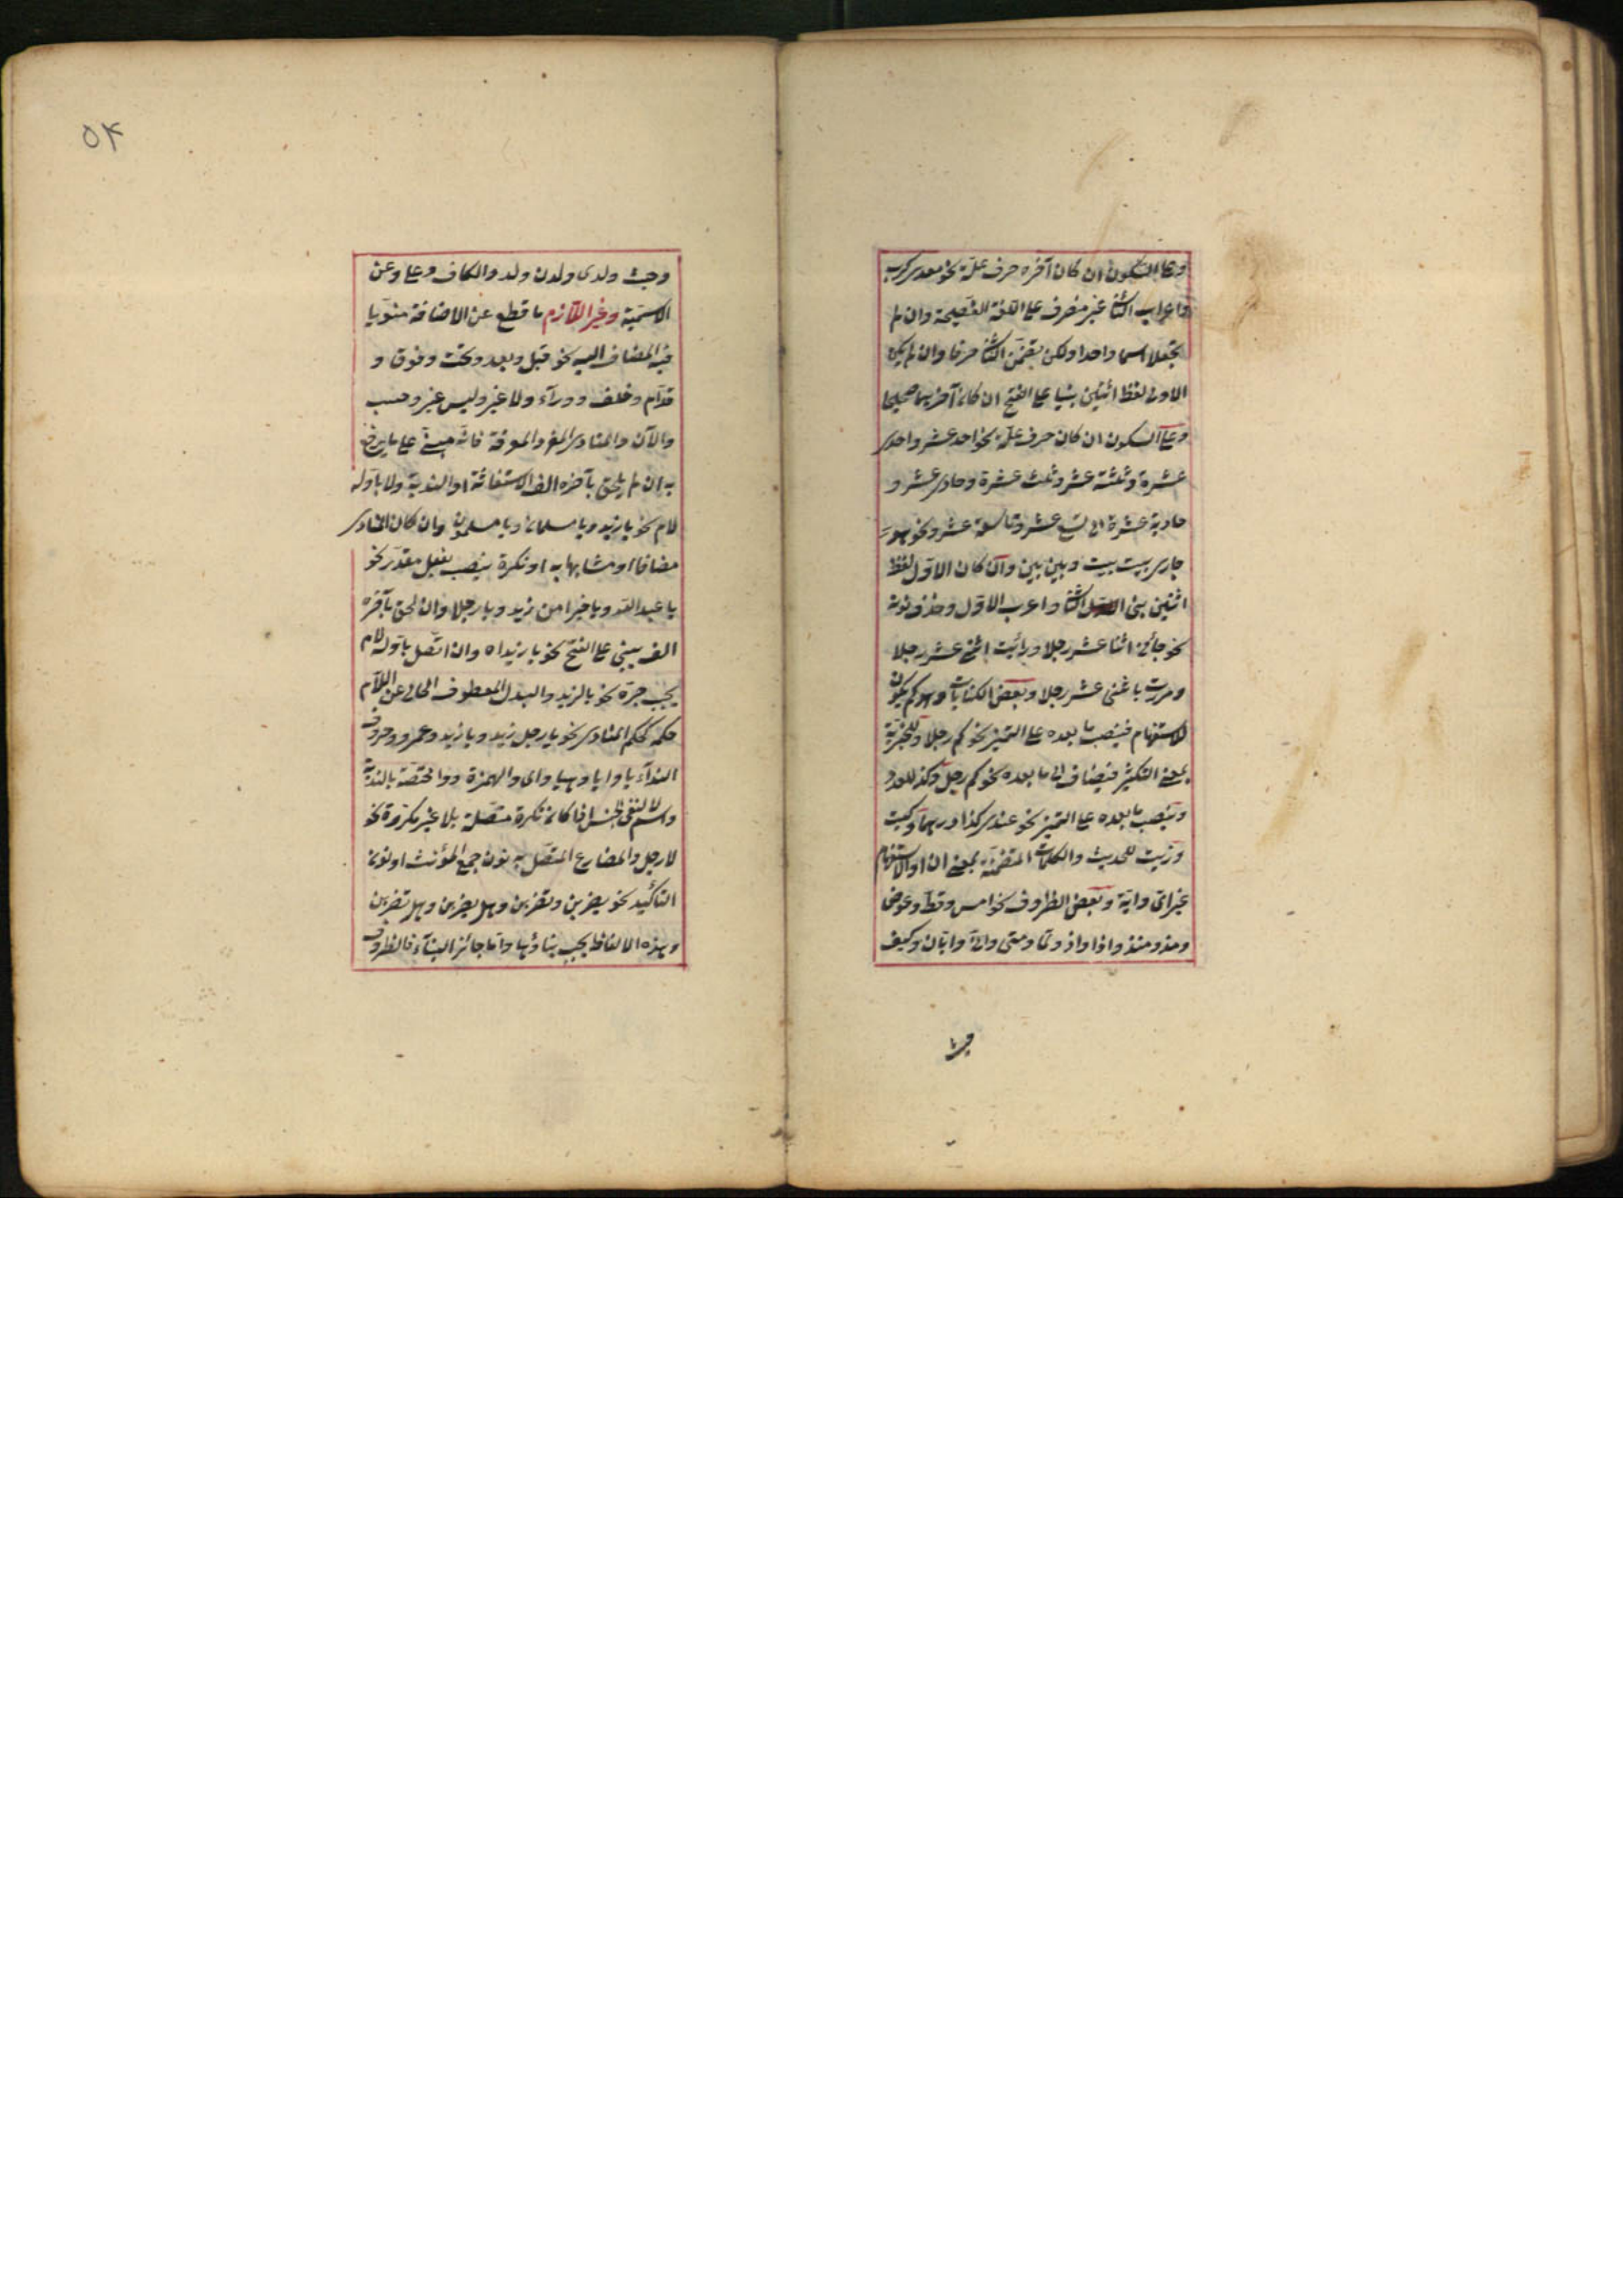 وعلى السكون ان كان آخره حرف علّة نحو معدى كرب
واعراب الثانى غير منصرف على اللغة الفصيحة وان لم
يجعلا اسما واحدا ولكن يتضمّن الثانى حرفا وان لم يكن
الاول لفظ اثنين بنيا على الفتح ان كان آخرهما صحيحا
وعلى السكون ان كان حرف علّة نحو احد عشر واحدى
عشرة وثلثة عشر وثلث عشرة وحادى عشر و
حادية عشرة الى تسع عشر وتاسعة عشر ونحو هو
جارى بيت بيت وبين بين وان كان الاوّل لفظ
اثنين بنى الثانى واعرب الاوّل وحذف نونه
نحو جائنى اثنا عشر رجلا ورأيت اثنى عشر رجلا
ومررت باثنى عشر رجلا وبعض الكنايات وهو كم يكون
للاستفهام فينصب ما بعده على التميز نحو كم رجلا وللخبريّة
بمعنى التكثير فيضاف الى ما بعده نحو كم رجل وكذا للعدد
وينصب ما بعده على التميز نحو عندى كذا درهما وكيت
وذيت للحديث والكلمات المتضمّنة بمعنى ان او الاستفهام
غير اىّ وايّة وبعض الظروف نحو امس وقطّ وعوض
ومذ ومنذ واذا واذ ولمّا ومتى وانّى وايّان وكيف
وحيث
وحيث ولدى ولدن ولد والكاف وعلى وعن
الاسميّة وغير اللّازم ما قطع عن الاضافة منويّا
فيه المضاف اليه نحو قبل وبعد وتحت وفوق و
قدّام وخلف ووراء ولا غير وليس غير وحسب
والآن والمنادى المفرد المعرفة فانّه مبنىّ على ما يرفع
به ان لم يلحق بآخره الف الاستغاثة او الندبة ولا باوّله
لام نحو يا زيد ويا مسلمان ويا مسلمون وان كان المنادى
مضافا او مشابها به او نكرة ينصب بفعل مقدّر نحو
يا عبد الله ويا خيرا من زيد ويا رجلا وان لحق بآخره
الف يبنى على الفتح نحو يا زيداه وان اتّصل باوّله لام
يجب جرّه نحو يا لزيد والبدل المعطوف الخالى عن اللّام
حكمه كحكم المنادى نحو يا رجل زيد ويا زيد وعمرو وحروف
النداء يا وايا وهيا واى والهمزة ووا مختصّة بالندبة
واسم لا لنفى الجنس اذا كان نكرة متّصلة بلا غير مكرّرة نحو
لا رجل والمضارع المتّصل به نون جمع المؤنث او نون
التأكيد نحو يضربن وتضربن وهل يضربن وهل تضربن
وهذه الالفاظ يجب بناؤها وامّا جائز البناء فالظروف